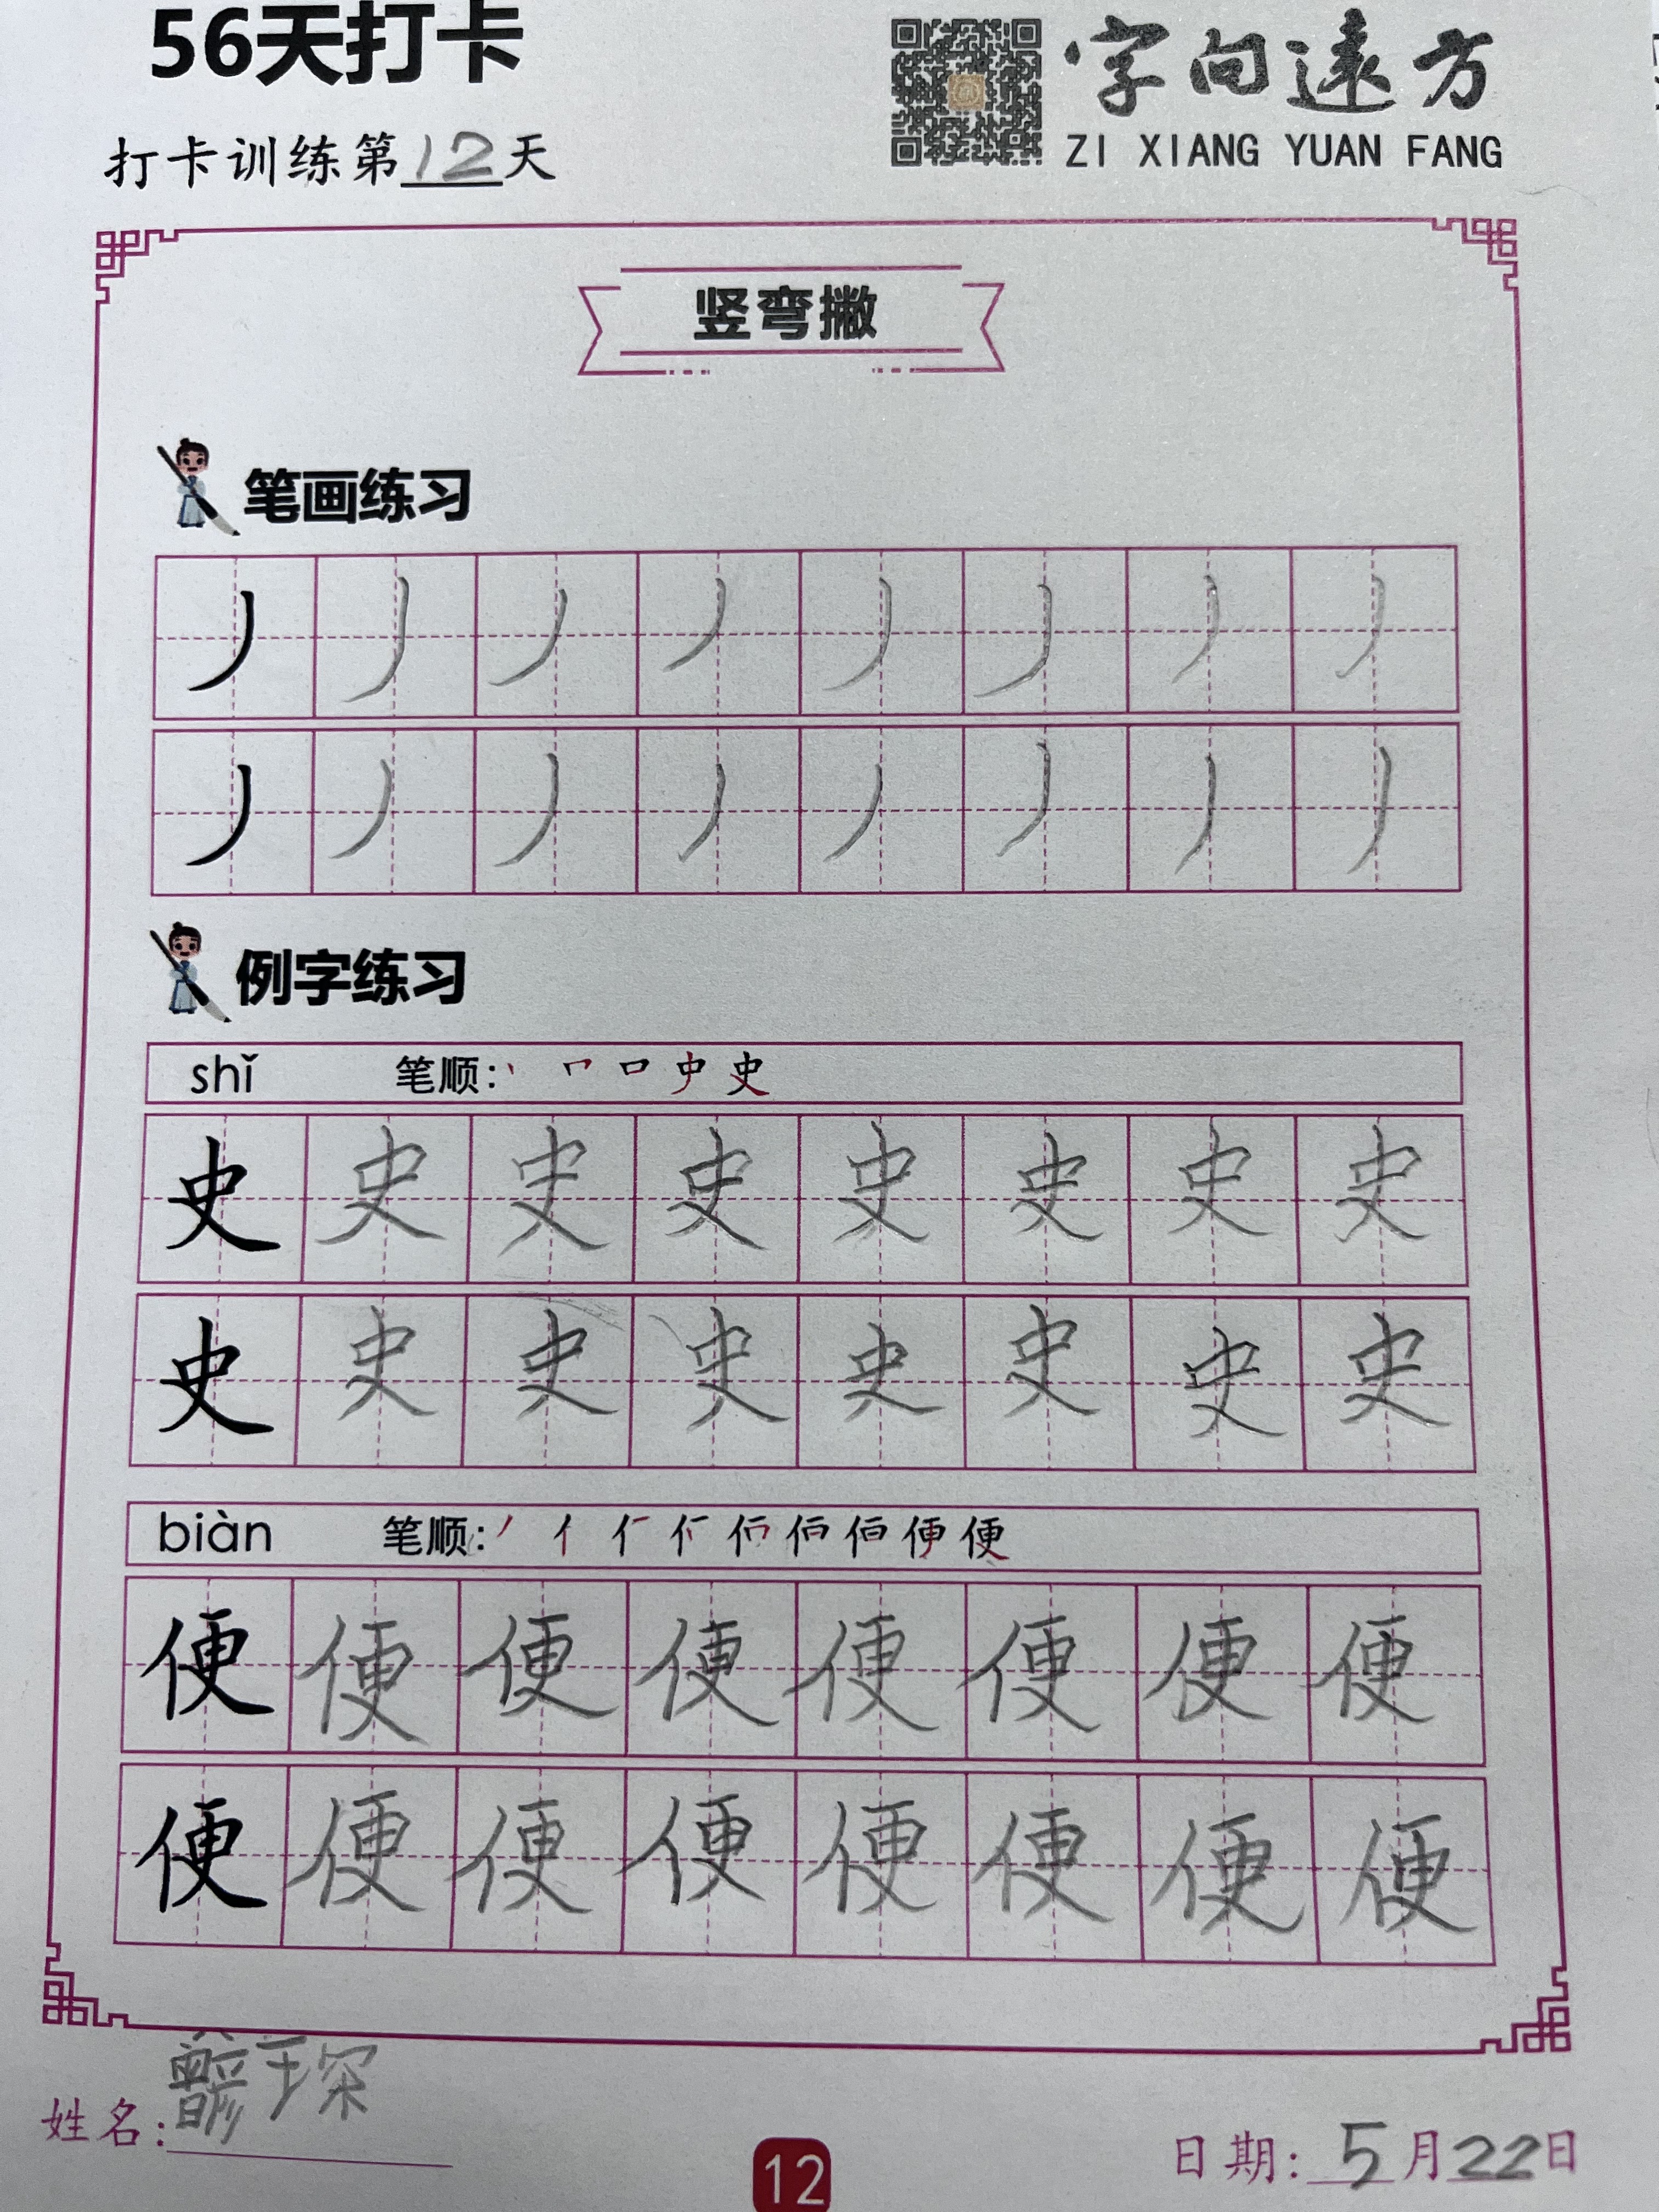 56天打卡
字向远方
ZI XIANG YUAN FANG
打卡训练第12天
竖弯撇
笔画练习
丿 丿 丿 丿 丿 丿 丿 丿
丿 丿 丿 丿 丿 丿 丿 丿
例字练习
shǐ 笔顺:
史 史 史 史 史 史 史 史
史 史 史 史 史 史 史 史
biàn 笔顺:
便 便 便 便 便 便 便 便
便 便 便 便 便 便 便 便
姓名:
日期:5月22日
12